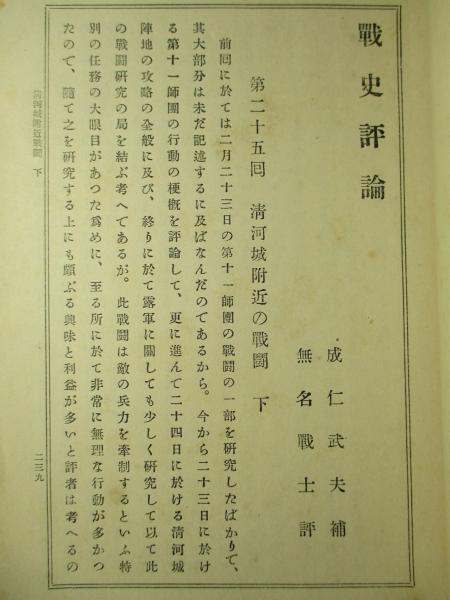 戰史評論
成仁武夫補
無名戰士評
第二十五回　淸河城附近の戰鬪　下
前回に於ては二月二十三日の第十一師團の戰鬪の一部を硏究したばかりて、
其大部分は未だ記述するに及ばなんだのであるから。今から二十三日に於け
る第十一師團の行動の梗槪を評論して、更に進んて二十四日に於ける淸河城
陣地の攻略の全般に及び、終りに於て露軍に關しても少しく硏究して以て此
の戰鬪硏究の局を結ぶ考へてあるが。此戰鬪は敵の兵力を牽制するといふ特
別の任務の大眼目があつた爲めに、至る所に於て非常に無理な行動が多かつ
たので、隨て之を硏究する上にも頗ぶる興味と利益が多いと評者は考へるの
淸河城附近戰鬪　下
二三九